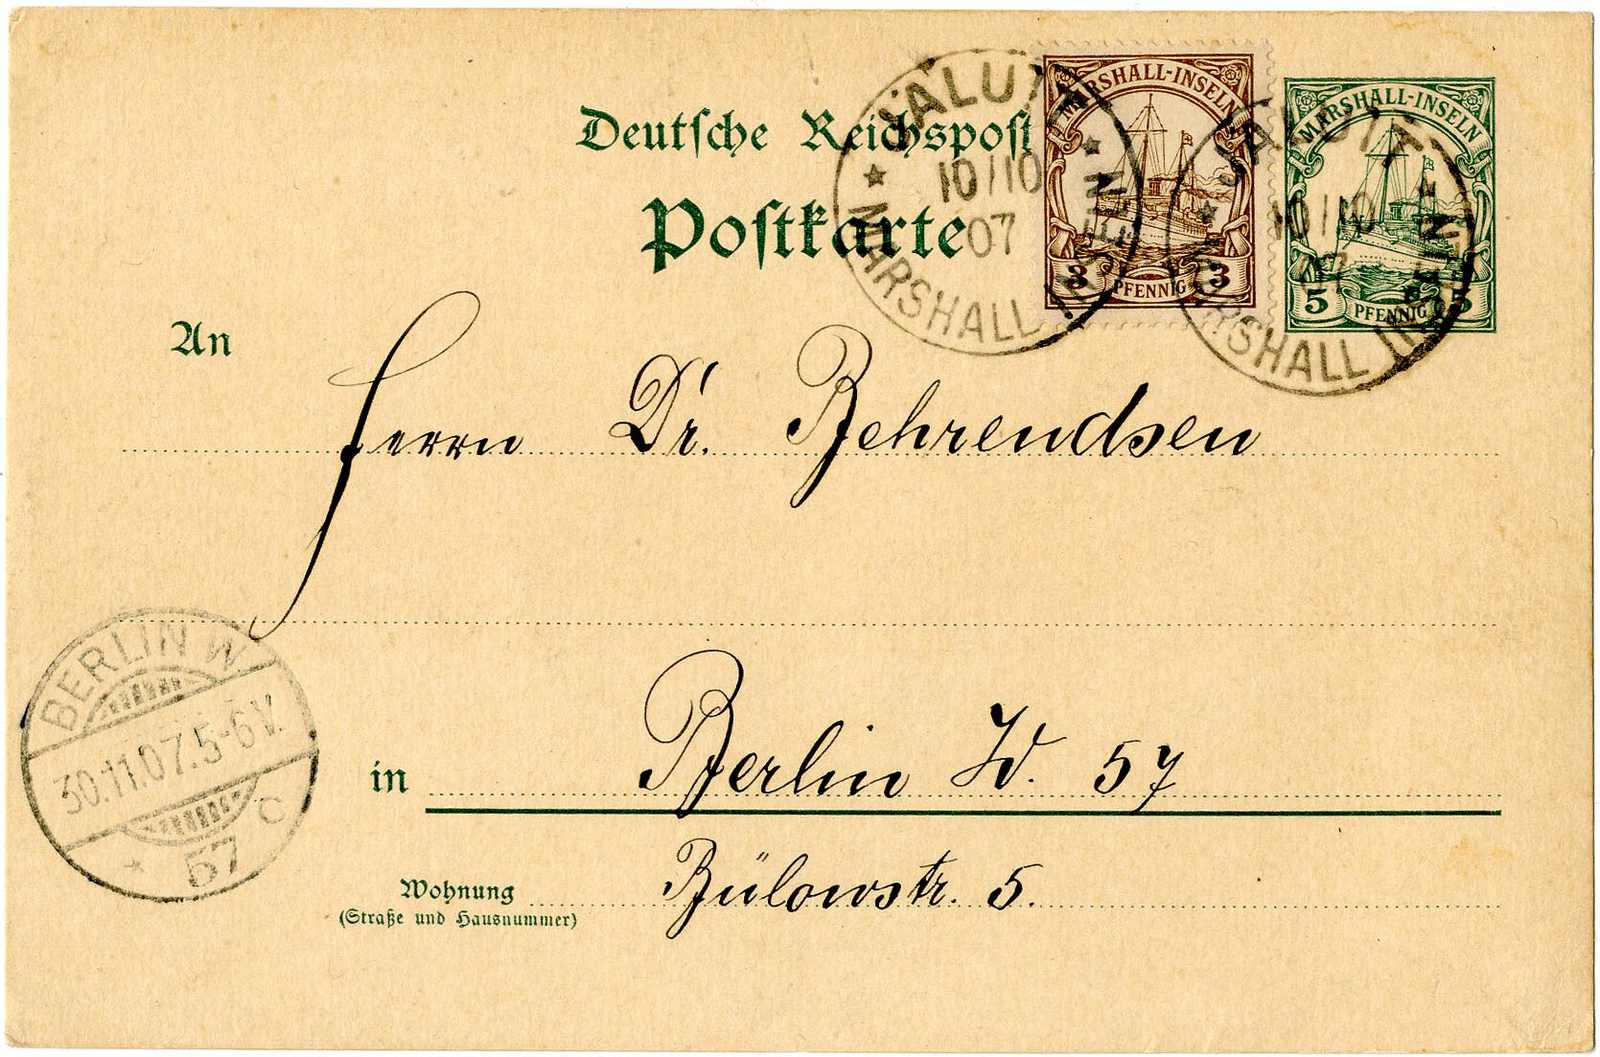 Deutſche Reichspoſt
Poſtkarte
JALUIT
10/10
07
MARSHALL INSELN
MARSHALL-INSELN
3 PFENNIG 3
JALUIT
10/10
07
MARSHALL INSELN
MARSHALL-INSELN
5 PFENNIG 5
An
Herrn Dr. Behrendsen
in
Berlin W. 57
Wohnung
(Straße und Hausnummer)
Bülowstr. 5.
BERLIN W
30.11.07.5-6V.
* 57 c